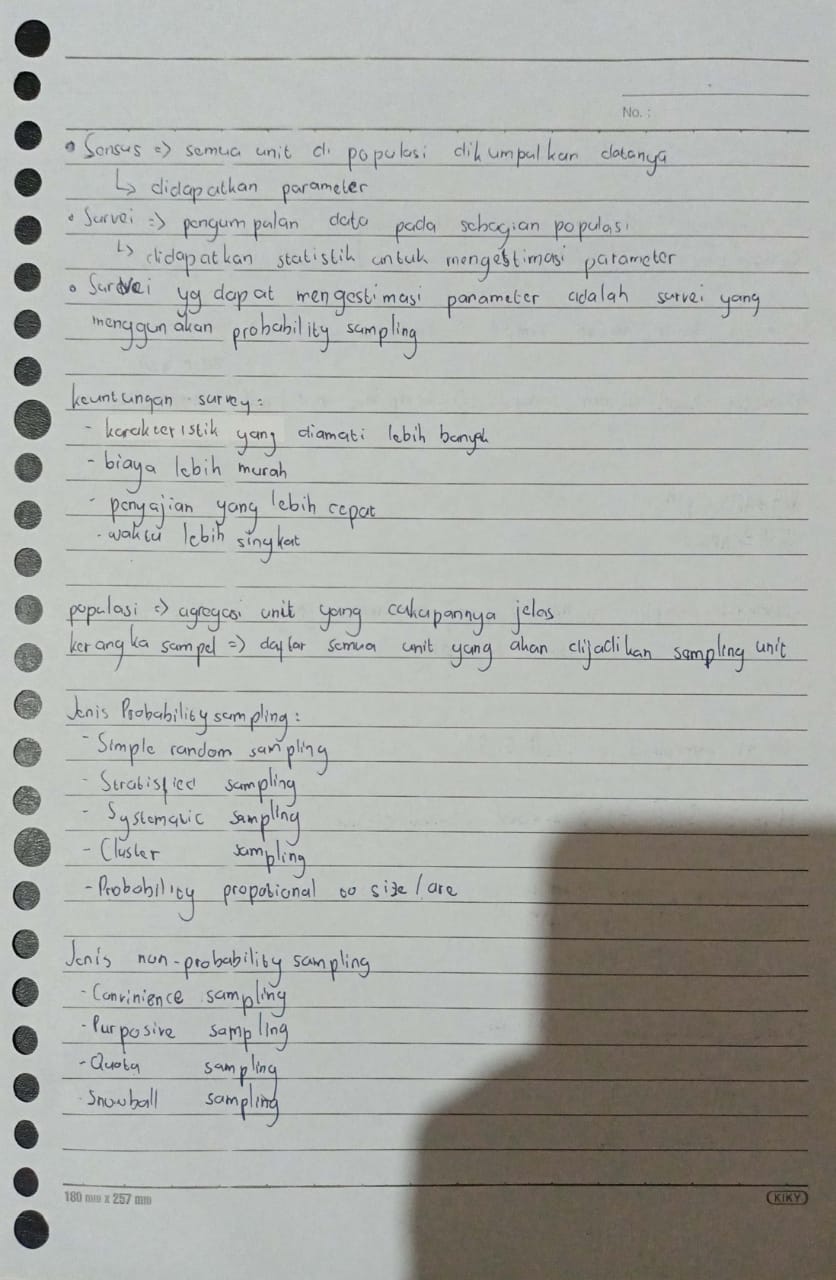 No. :
• Sensus => semua unit di populasi dikumpulkan datanya
↳ didapatkan parameter
• Survei => pengumpulan data pada sebagian populasi
↳ didapatkan statistik untuk mengestimasi parameter
• Survei yg dapat mengestimasi parameter adalah survei yang
menggunakan probability sampling
keuntungan survey:
- karakteristik yang diamati lebih banyak
- biaya lebih murah
- penyajian yang lebih cepat
- waktu lebih singkat
populasi => agregasi unit yang cakupannya jelas
kerangka sampel => daftar semua unit yang akan dijadikan sampling unit
Jenis Probability sampling:
- Simple random sampling
- Stratisfied sampling
- Systematic sampling
- Cluster sampling
- Probability propotional to size/are
Jenis non-probability sampling
- Convinience sampling
- Purposive sampling
- Quota sampling
- Snowball sampling
180 mm x 257 mm
KIKY